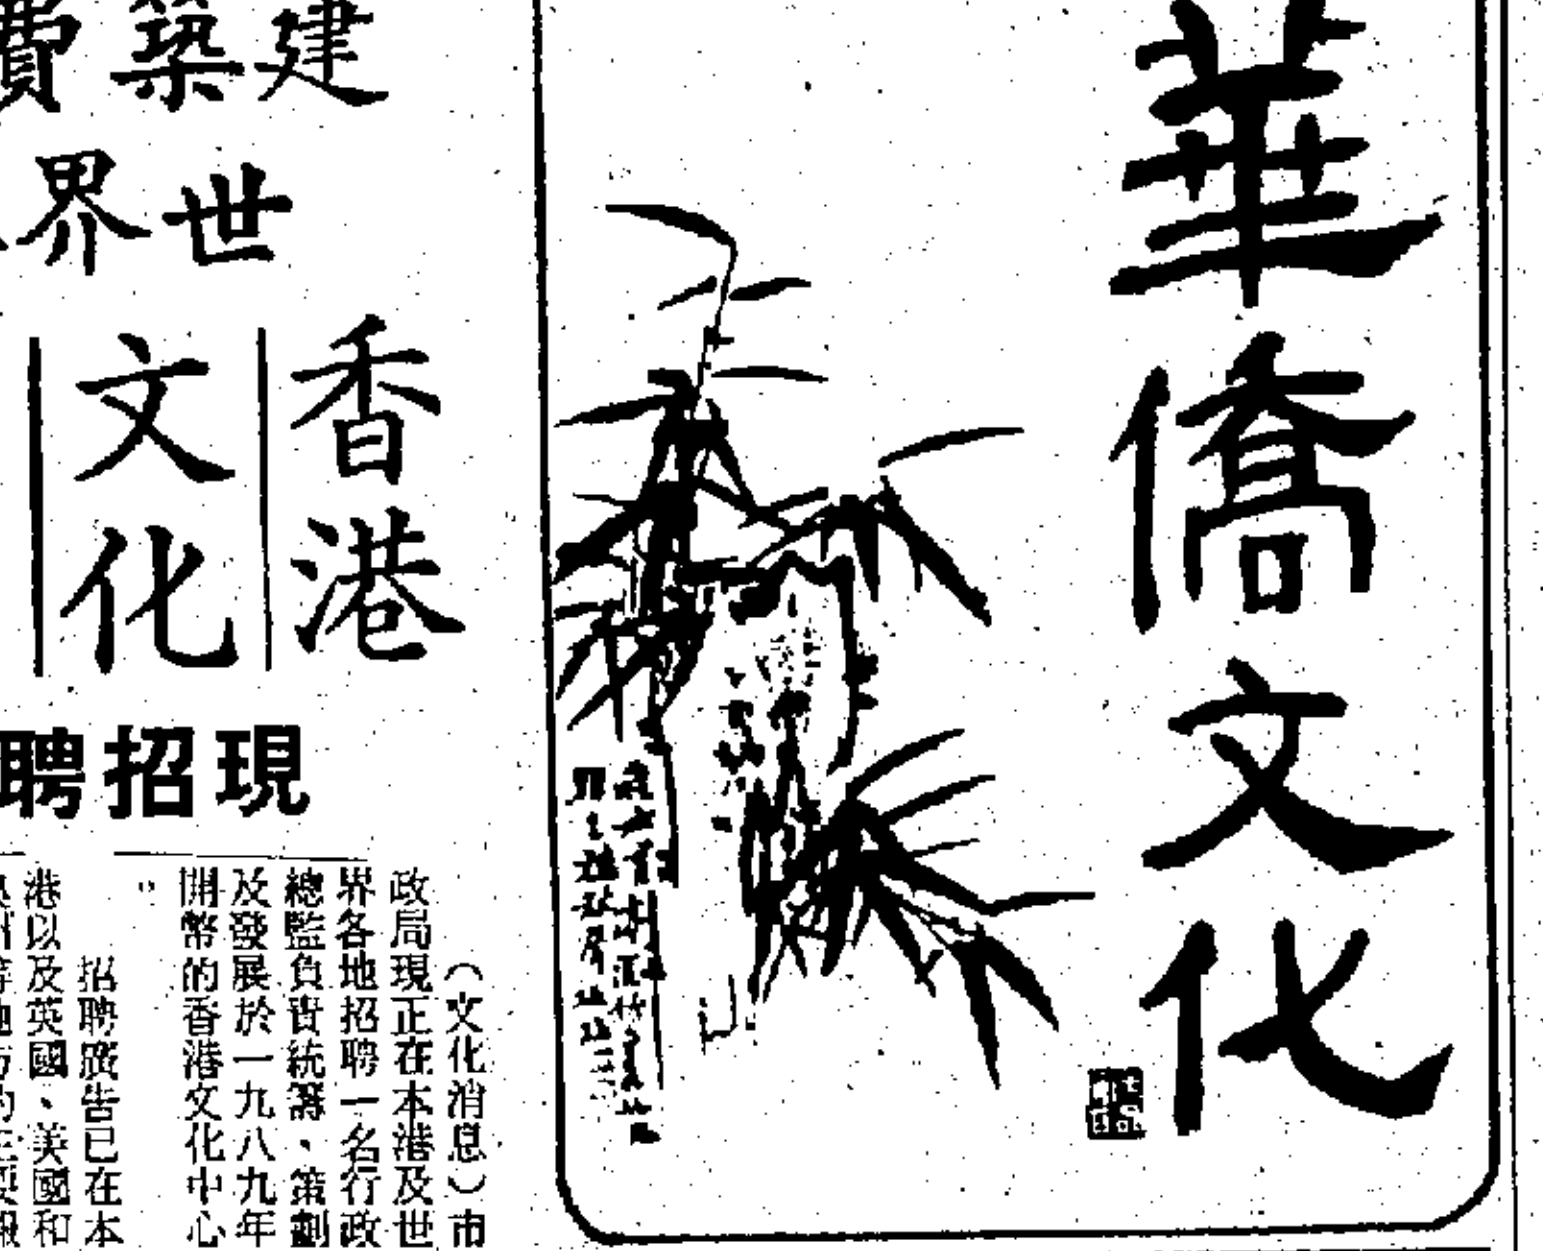 華僑文化
建築費
世界
香港
文化
現招聘
（文化消息）市
政局現正在本港及世
界各地招聘一名行政
總監負責統籌、策劃
及發展於一九八九年
開幣的香港文化中心
。
招聘廣告已在本
港以及英國、美國和